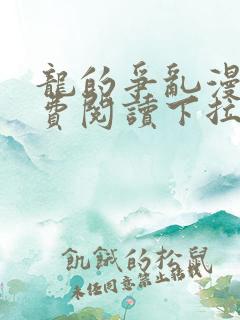 龍的爭亂漫
費閱讀下拉
飢餓的松鼠
未任同意禁止轉載